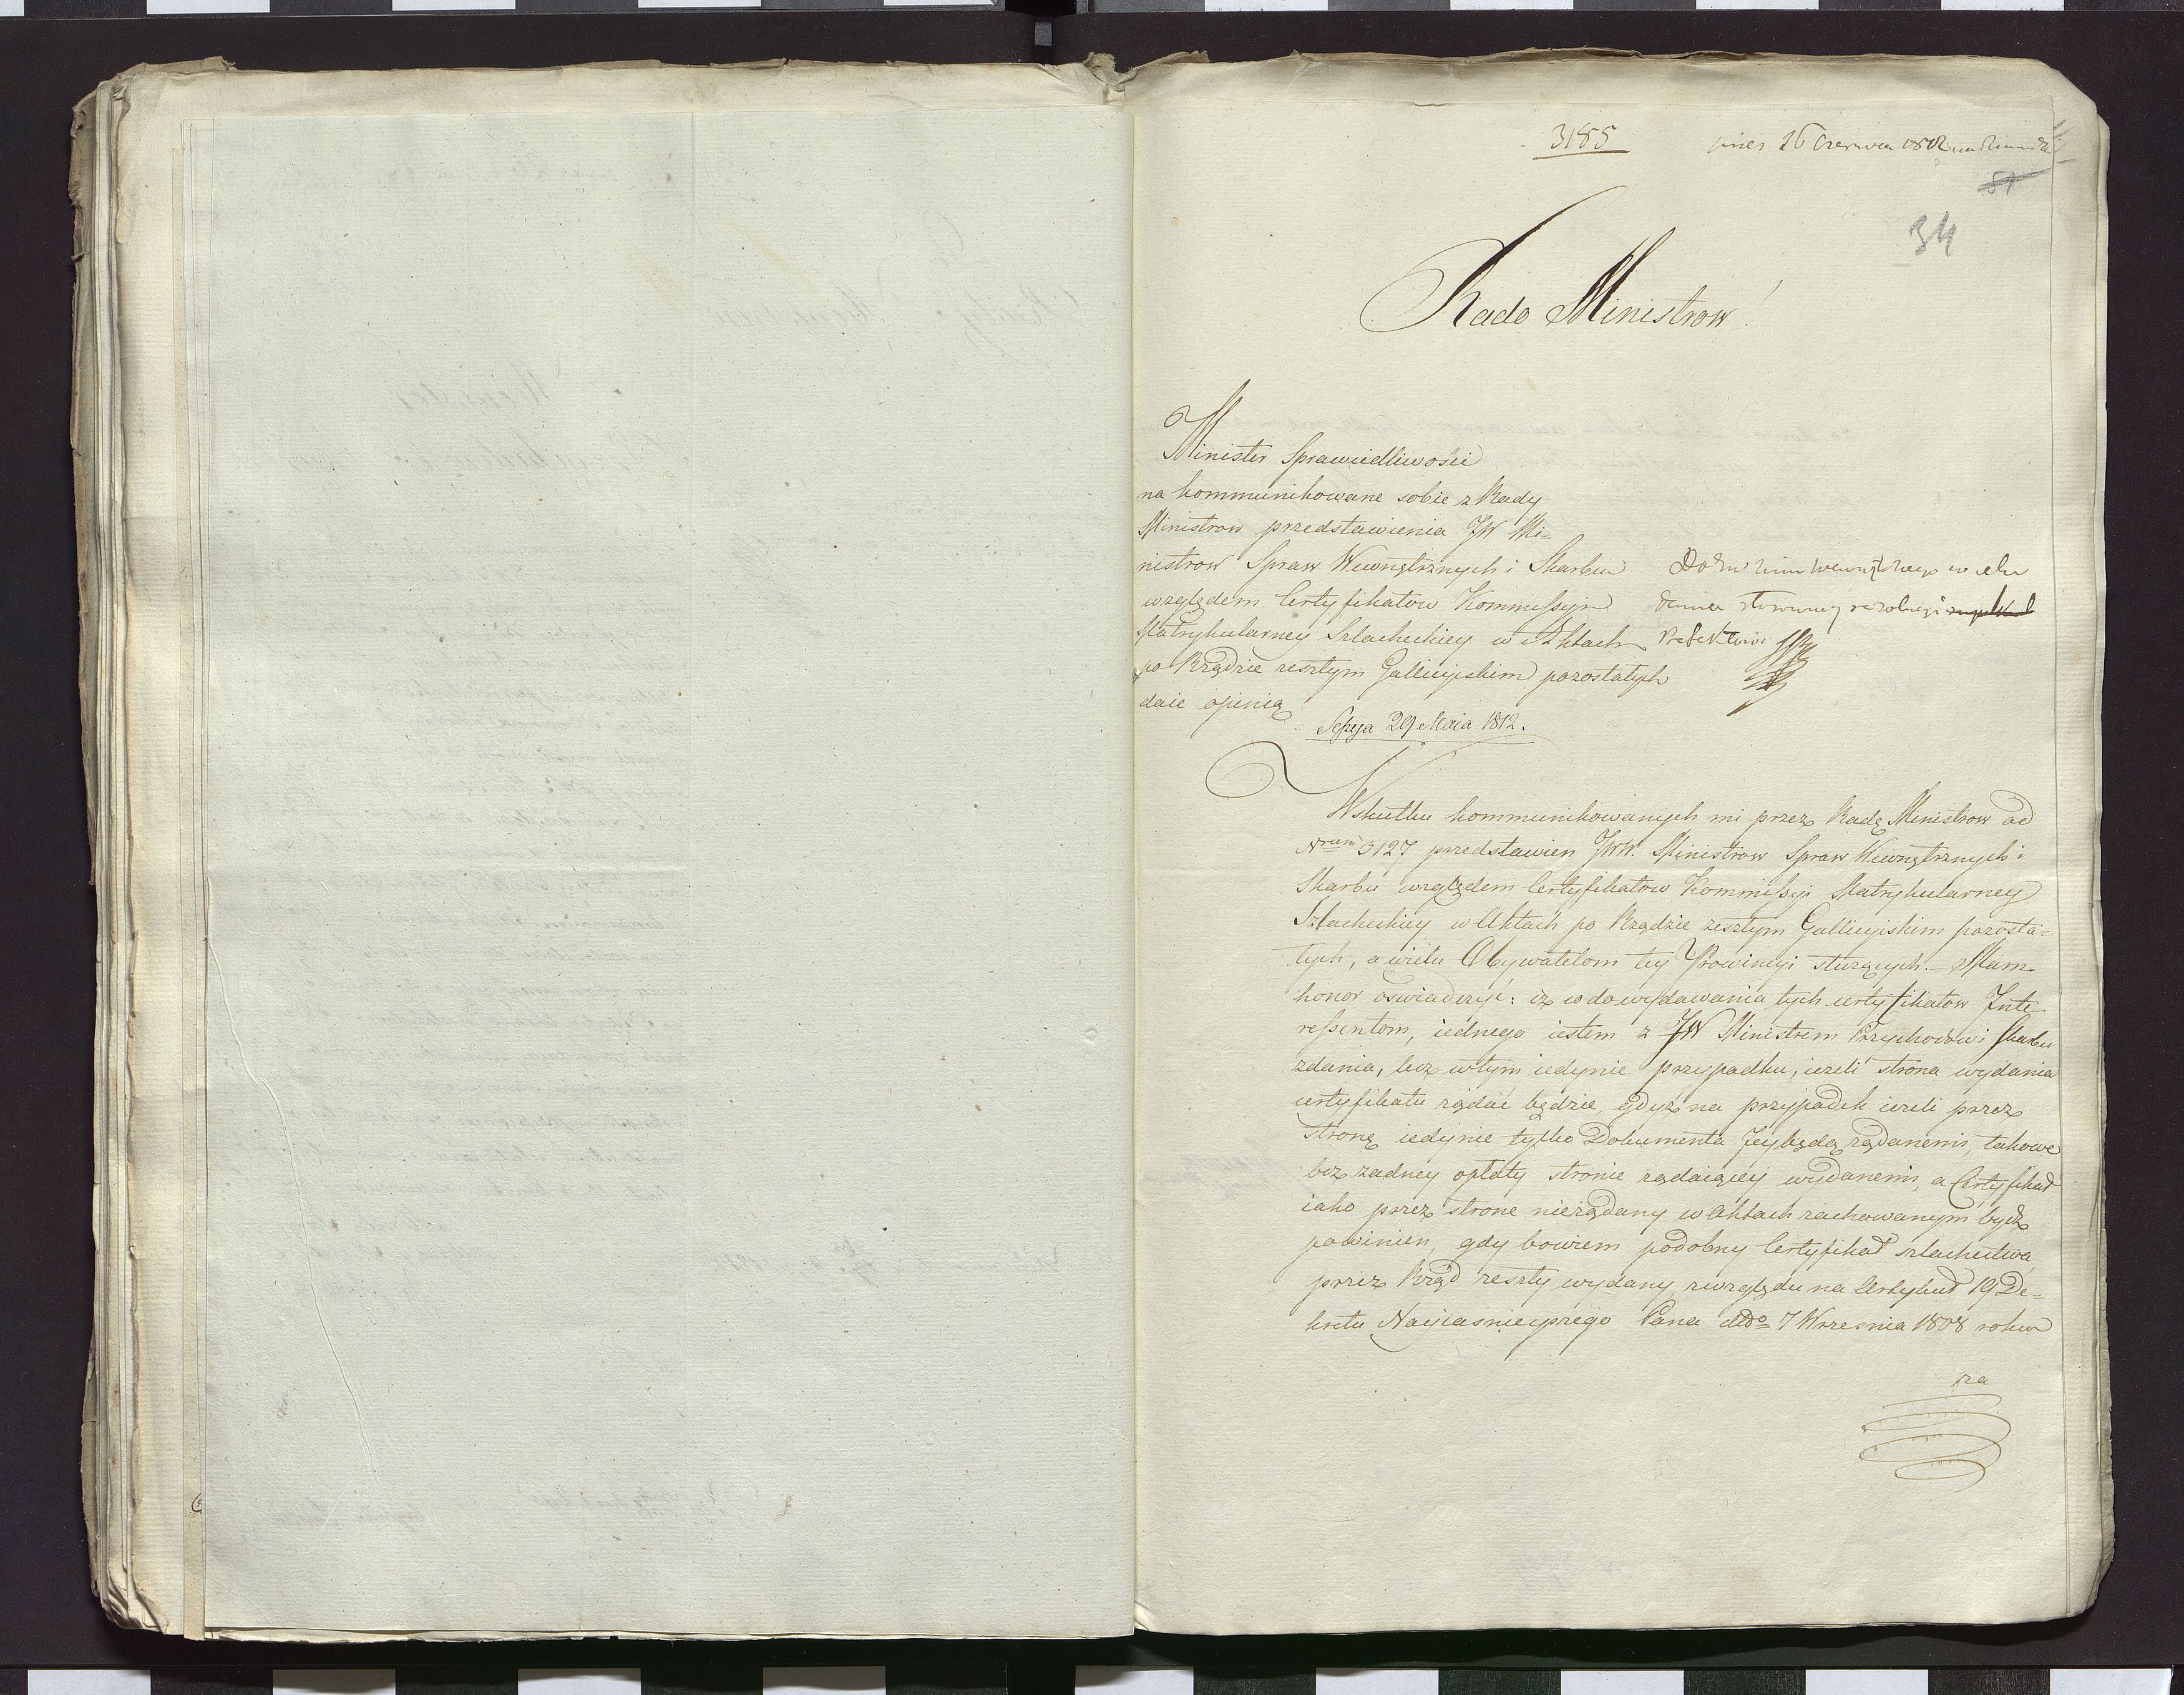 3185
16 Czerwca 1812
51
34
Rado Ministrow!
Minister Sprawiedliwości
na kommunikowane sobie z Rady
Ministrow przedstawienia JW Mi=
nistrow Spraw Wewnętrznych i Skarbu
względem Certyfikatow Kommissyi
Matrykularney Szlacheckiey w Aktach
po Rządzie zeszłym Gallicyiskim pozostałych
daie opinią
Sessya 29 Maia 1812.
w celu
dania stosowney rezolucyi
Prefektowi
Wskutku kommunikowanych mi przez Radę Ministrow ad
Nrum 3127 przedstawien JWW. Ministrow Spraw Wewnętrznych i
Skarbu względem Certyfikatow Kommissyi Matrykularney
Szlacheckiey w Aktach po Rządzie zeszłym Gallicyiskim pozosta=
łych, a wielu Obywatelom tey Prowincyi służących. – Mam
honor oswiadczyć: iż co do wydawania tych certyfikatow Inte
ressentom, iednego iestem z JW Ministrem Przychodow i Skarbu
zdania, lecz w tym iedynie przypadku, ieżeli strona wydania
certyfikatu żądać będzie, gdyż na przypadek ieżeli przez
stronę iedynie tylko Dokumenta Jey będą żądanemi, takowe
bez żadney opłaty stronie żądaiącey wydanemi, a Certyfikat
iako przez strone nieżądany w Aktach zachowanym bydź
powinien, gdy bowiem podobny Certyfikat szlachectwa
przez Rząd zeszły wydany, zwzględu na Artykuł 19 De=
kretu Nayiasnieyszego Pana ddo 7 Wrzesnia 1808 roku
za